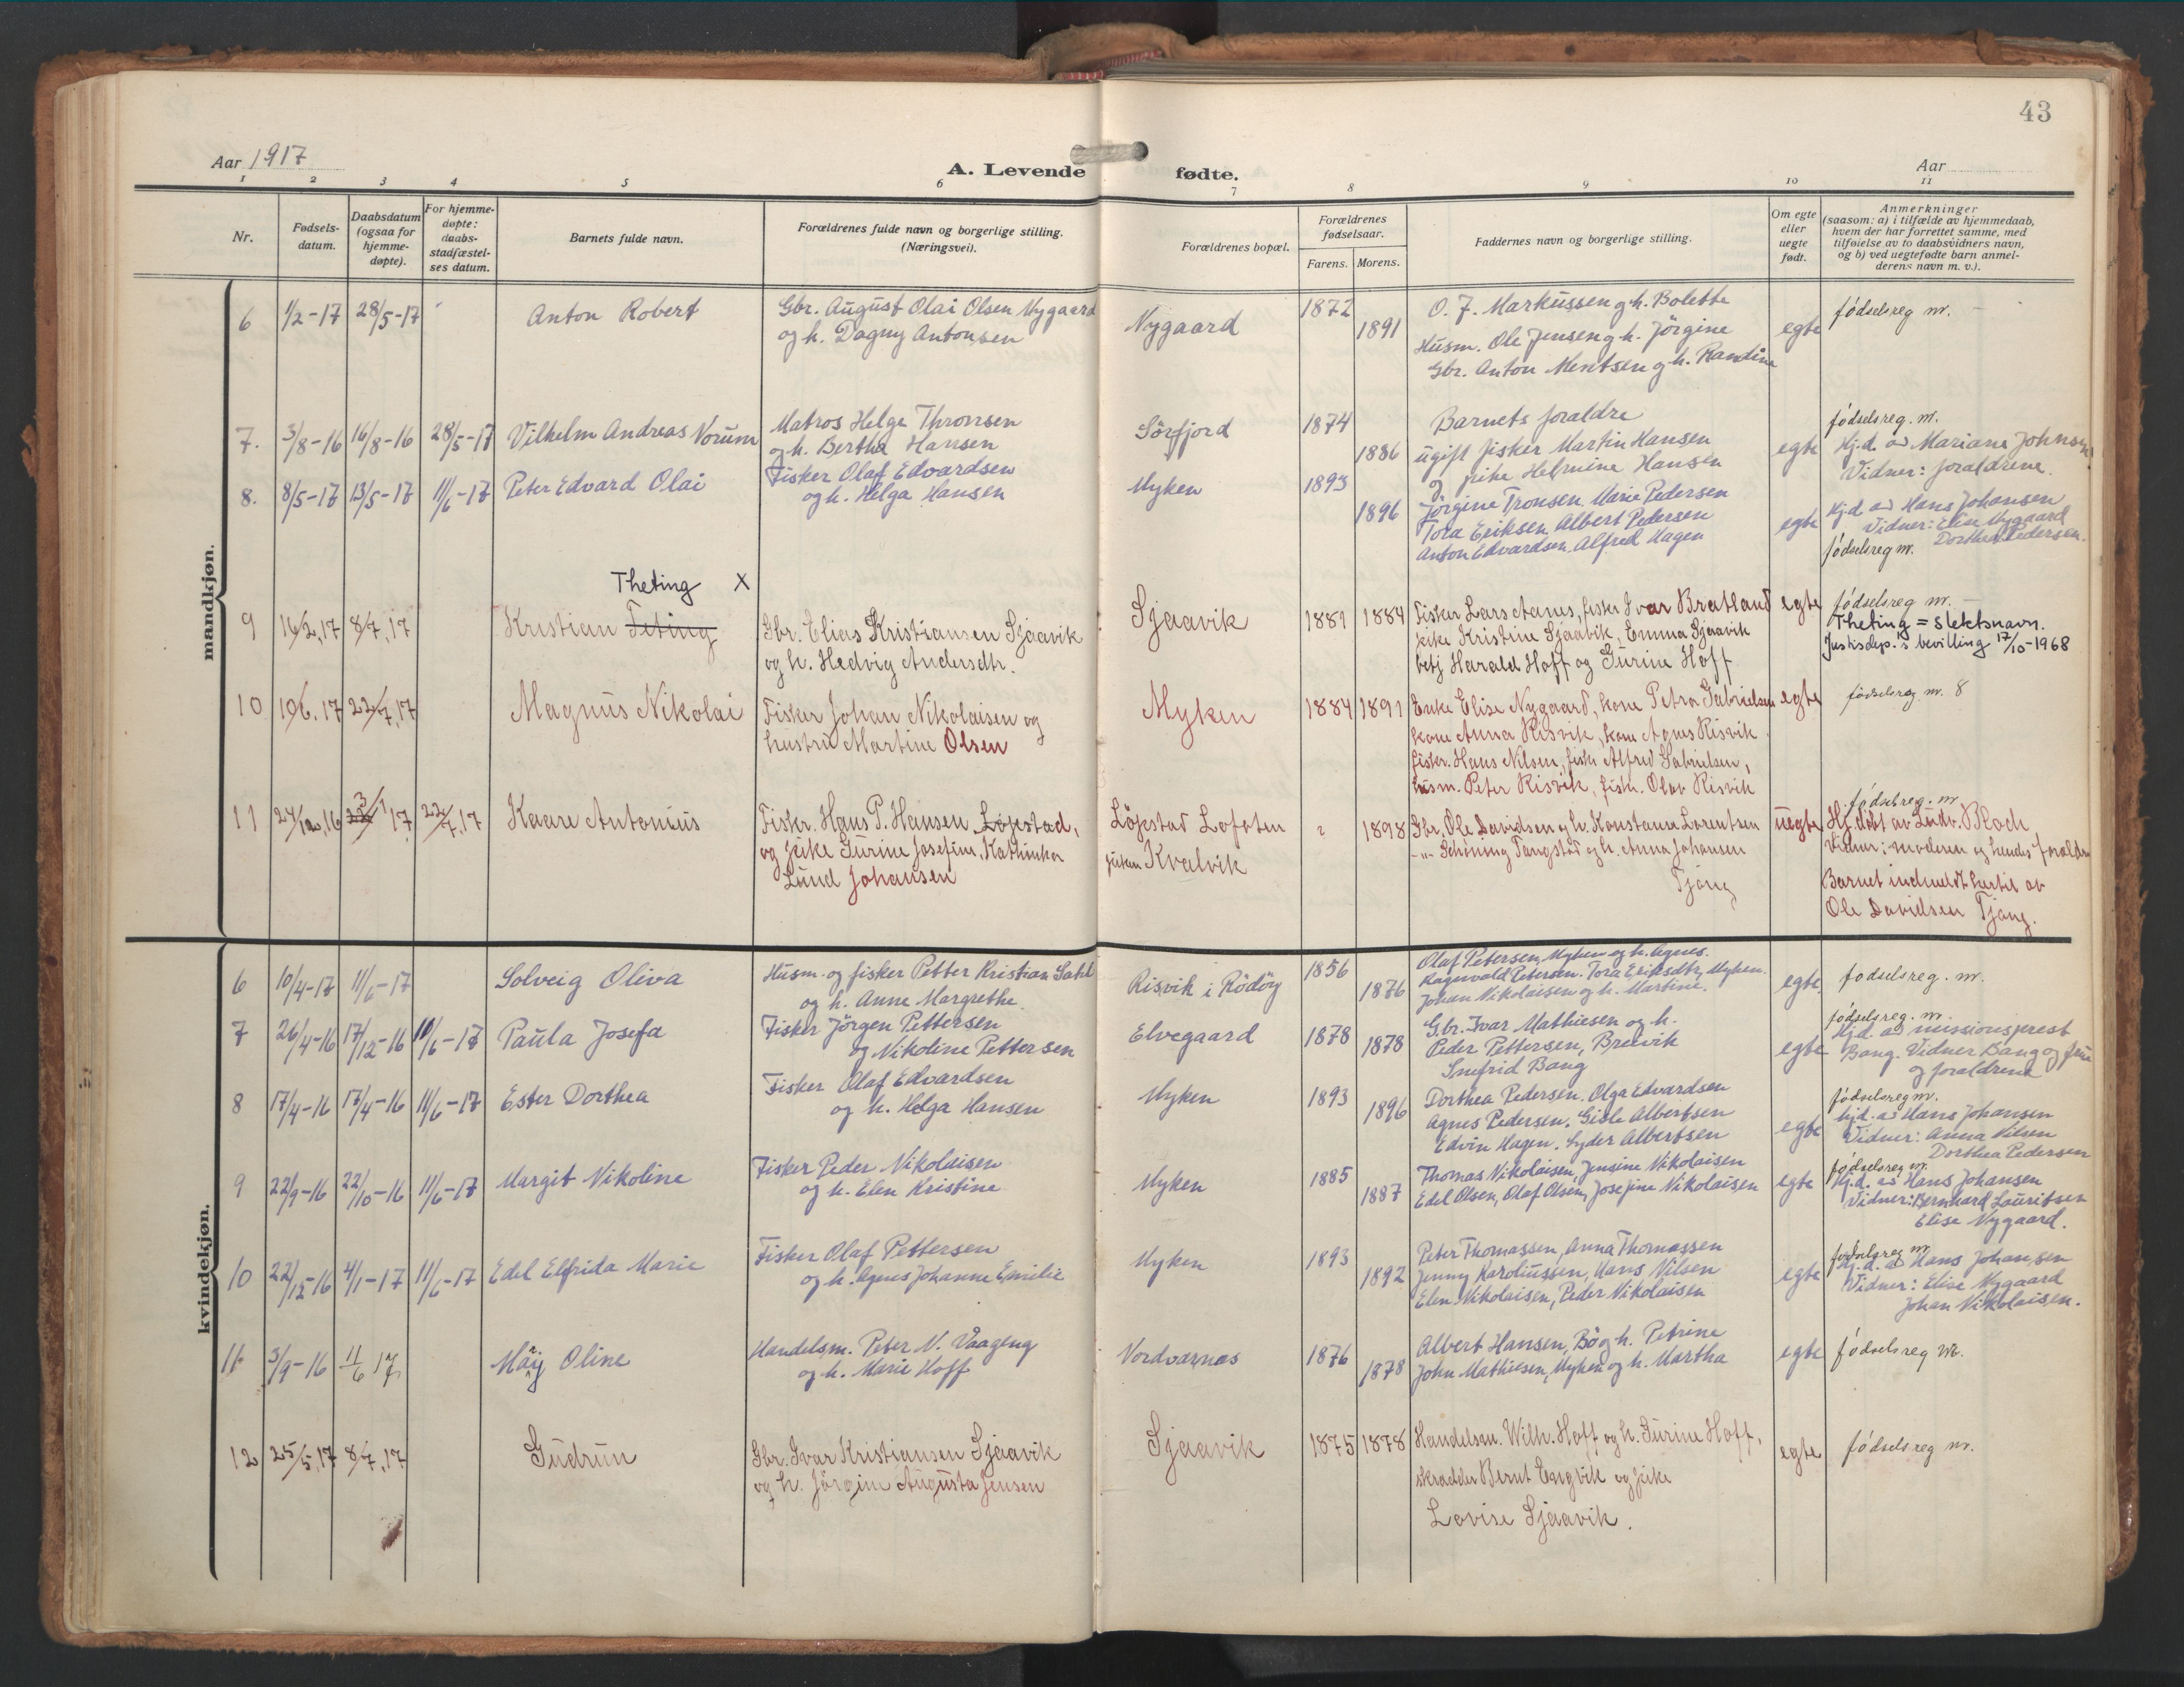 43
Aar 1917
A. Levende fødte.
Aar
1 2 3 4 5 6 7 8 9 10 11
Nr.
Fødsels-
datum.
Daabsdatum
(ogsaa for
hjemme-
døpte).
For hjemme-
døpte:
daabs-
stadfæstel-
ses datum.
Barnets fulde navn.
Forældrenes fulde navn og borgerlige stilling.
(Næringsvei).
Forældrenes bopæl.
Forældrenes
fødselsaar.
Farens. Morens.
Faddernes navn og borgerlige stilling.
Om egte
eller
uegte
født.
Anmerkninger
(saasom: a) i tilfælde av hjemmedaab,
hvem der har forrettet samme, med
tilføielse av to daabsvidners navn,
og b) ved uegtefødte barn anmel-
derens navn m. v.).
mandkjøn.
6 1/2-17 28/5-17 Anton Robert
Gbr. August Olai Olsen Nygaard
og h. Dagny Antonsen
Nygaard 1872 1891
O. J. Markussen og h. Bolette
Husm. Ole Jensen og h. Jörgine
Gbr. Anton Mentsen og h. Randine
egte
fódselsreg m. -
7. 3/8-16 16/8-16 28/5-17 Vilhelm Andreas Vorum
Matros Helge Thronsen
og h. Bertha Hansen
Sörfjord 1874 1886
Barnets foraldre
ugift fisker Martin Hansen
og pike Helmine Hansen
egte
fódselsreg. m.
Hj.d. av Mariane Johnsen
Vidner: foraldrene.
8. 8/5-17 13/5-17 11/6-17 Peter Edvard Olai
Fisker Olaf Edvardsen
og h. Helga Hansen
Myken 1893 1896
Jörgine Tronsen, Marie Pedersen
Tora Eriksen, Albert Pedersen
Anton Edvardsen, Alfred Hagen
egte
Hj.d. av Hans Johansen
Vidner: Elise Nygaard
Dorthea Pedersen.
fódselsreg m.
Theting X
9 16/2,17 8/7,17 Kristian Teting
Gbr. Elias Kristiansen Sjaavik
og h. Hedvig Andersdtr.
Sjaavik 1881 1884
Fisker Lars Aanes, fisker Ivar Bratland
pike Kristine Sjaavik, Emma Sjaavik
betj Harald Hoff og Gurine Hoff
egte
fódselsreg m. -
Theting = slektsnavn.
Justisdep.'s bevilling 17/10-1968
10 19/6,17 22/7,17 Magnus Nikolai
Fisker Johan Nikolaisen og
hustru Martine Olsen
Myken 1884 1891
Enke Elise Nygaard, kone Petra Gabrielsen
kone Anna Risvik, kone Agnes Risvik
fisker. Hans Nilsen, fisker Alfred Gabrielsen,
husm. Peter Risvik, fisk. Olav Risvik
egte
fódselsreg m. 8
11 24/12,16 3/1 17 22/7,17 Kaare Antonius
Fiskr. Hans P. Hansen, Löpstad,
og pike Gurine Josefine Kathinka
Lund Johansen
Löpstad Lofoten
piken Kvalvik
? 1898
Gbr. Ole Davidsen og h. Konstanse Lorentsen
-"- Schöning Tangstad og h. Anna Johansen
Tjong
uegte
fódselsreg. m
Hj. döbt av Ludv. Bloch
Vidner: moderen og hendes foraldre
Barnet indmeldt hertil av
Ole Davidsen Tjong.
kvindekjøn.
6 10/4-17 11/6-17 Solveig Oliva
Husm. og fisker Petter Kristian
og h. Anne Margrethe.
Risvik i Rödöy 1856 1876
Olaf Petersen, Myken og h. Agnes.
Ragnvald Petersen. Tora Eriksdtr, Myken.
Johan Nikolaisen og h. Martine.
egte.
fodselsreg. m.
7 26/4-16 17/12-16 10/6-17 Paula Josefa
Fisker Jörgen Pettersen
og Nikoline Pettersen
Elvegaard 1878 1878
Gbr. Ivar Mathiesen og h.
Peder Pettersen, Breivik
Snefrid Bang
egte
fódselsreg. m.
Hj.d. av missionsprest
Bang. Vidner Bang og frue
og foraldrene
8 17/4-16 17/4-16 11/6-17 Ester Dorthea
Fisker Olaf Edvardsen
og h. Helga Hansen
Myken 1893 1896
Dorthea Pedersen, Olga Edvardsen
Agnes Pedersen, Gisle Albertsen
Edvin Hagen. Syder Albertsen
egte
fódselsreg m.
hj.d. av Hans Johansen
Vidner: Anna Nilsen
Dorthea Pedersen
9 22/9-16 22/10-16 11/6-17 Margit Nikoline
Fisker Peder Nikolaisen
og h. Elen Kristine
Myken 1885 1887
Thomas Nikolaisen, Jensine Nikolaisen
Edel Olsen, Olaf Olsen, Josefine Nikolaisen
egte
fódselsreg m.
Hj.d. av Hans Johansen
Vidner: Bernhard Lauritsen
Elise Nygaard.
10 22/12-16 4/1-17 11/6-17 Edel Elfrida Marie
Fisker Olaf Pettersen
og h. Agnes Johanne Emilie
Myken 1893 1892
Peter Thomassen, Anna Thomassen
Jenny Karoliussen, Hans Nilsen
Elen Nikolaisen, Peder Nikolaisen
egte
fodselsreg m
Hj.d. av Hans Johansen
Vidner: Elise Nygaard
Johan Nikolaisen.
11 3/9-16 11/6 17 Maij Oline
Handelsm. Peter N. Vaageng
og h. Marie Hoff
Nordvarnes 1876 1878
Albert Hansen, Bö og h. Petrine
John Mathiesen, Myken og h. Martha
egte
fódselsreg m.
12 25/5,17 8/7,17 Gudrun
Gbr. Ivar Kristiansen Sjaavik
og h. Jörgine Augusta Jensen
Sjaavik 1875 1878
Handelsm. Wilh. Hoff og h. Gurine Hoff,
skradder Bernt Engvik og pike
Lovise Sjaavik.
egte
fódselsreg m.